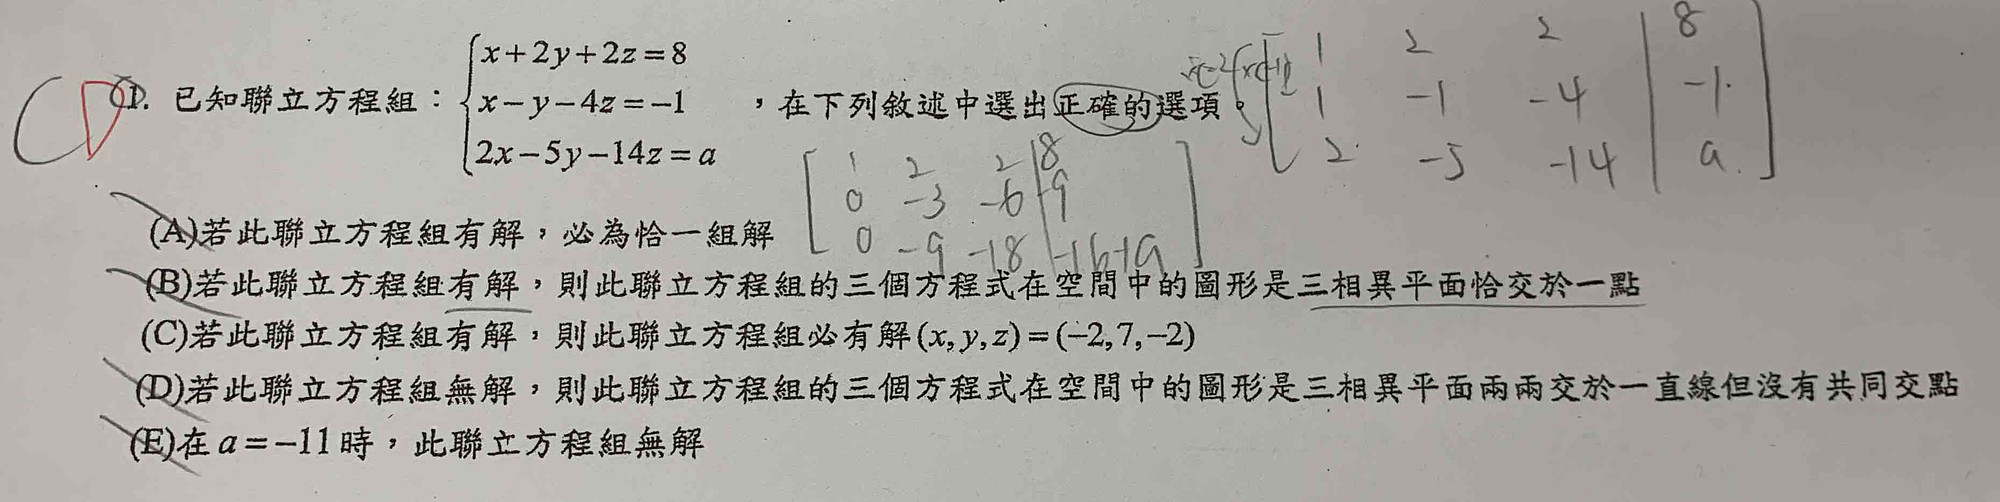 CD
1. 已知聯立方程組：{x+2y+2z=8
x-y-4z=-1
2x-5y-14z=a，在下列敘述中選出正確的選項。
1 2 2 8
1 -1 -4 -1
2 -5 -14 a
1 2 2 8
0 -3 -6 -9
0 -9 -18 -16+a
(A)若此聯立方程組有解，必為恰一組解
(B)若此聯立方程組有解，則此聯立方程組的三個方程式在空間中的圖形是三相異平面恰交於一點
(C)若此聯立方程組有解，則此聯立方程組必有解(x,y,z)=(-2,7,-2)
(D)若此聯立方程組無解，則此聯立方程組的三個方程式在空間中的圖形是三相異平面兩兩交於一直線但沒有共同交點
(E)在a=-11時，此聯立方程組無解